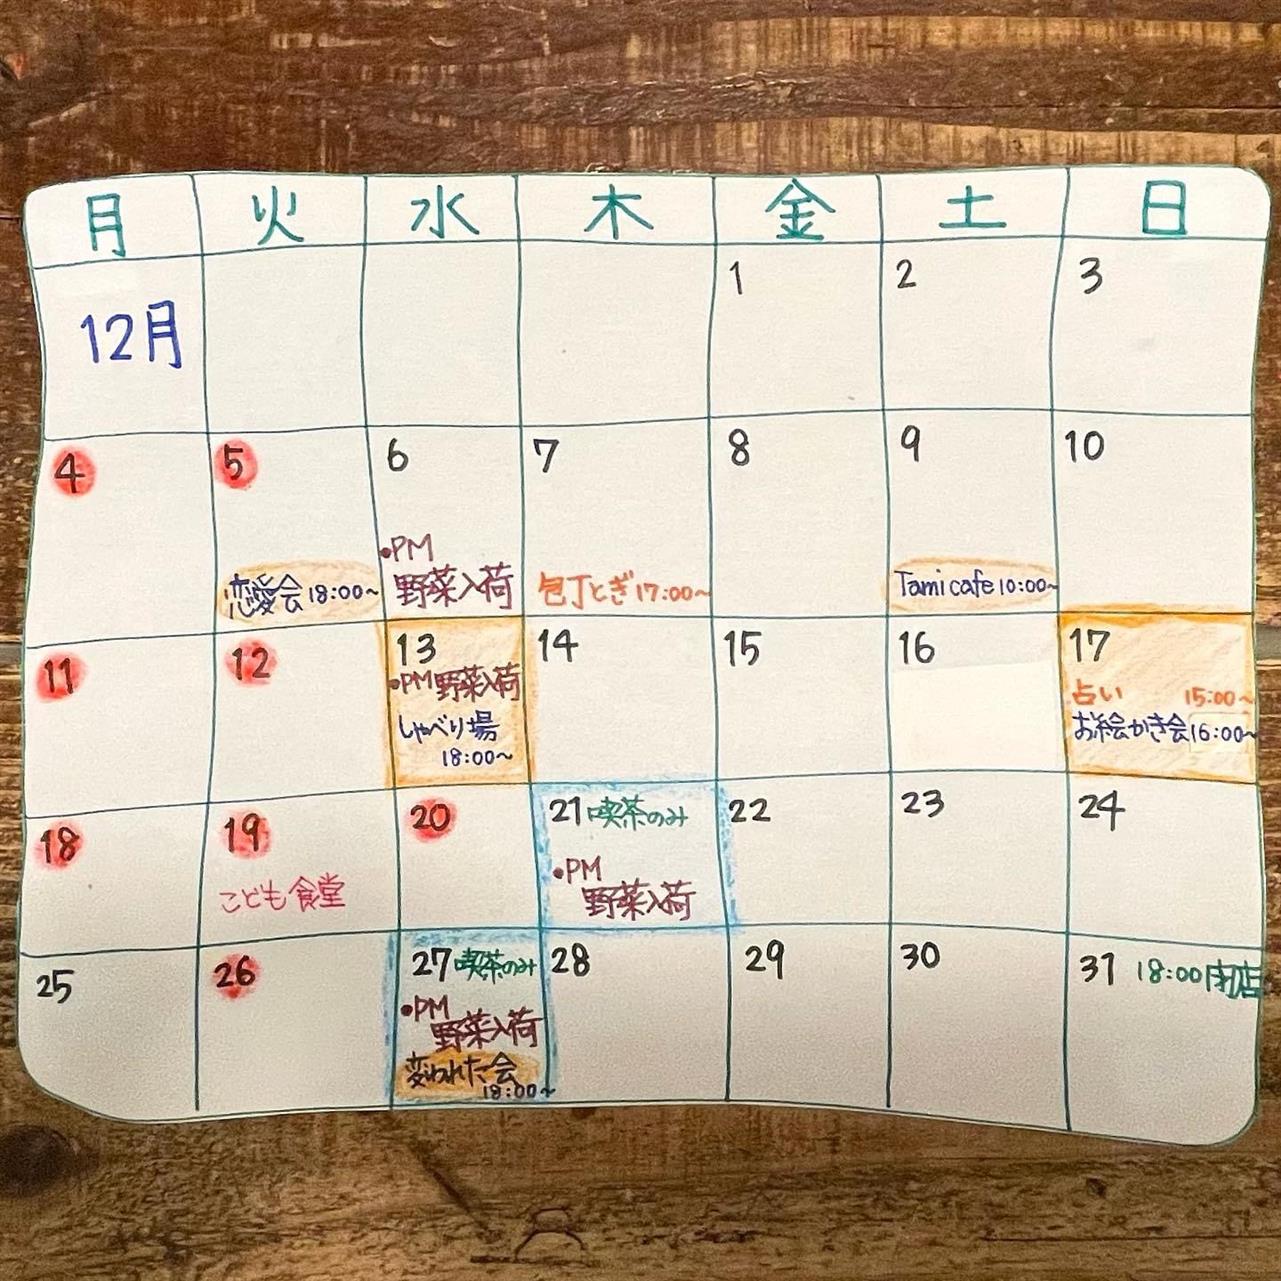 月 火 水 木 金 土 日
12月
1 2 3
4 5 6 7 8 9 10
恋愛会 18:00~
•PM
野菜入荷
包丁とぎ 17:00~
Tami cafe 10:00~
11 12 13 14 15 16 17
•PM 野菜入荷
しゃべり場
18:00~
占い 15:00~
お絵かき会 16:00~
18 19 20 21 喫茶のみ 22 23 24
こども食堂
•PM
野菜入荷
25 26 27 喫茶のみ 28 29 30 31 18:00 閉店
•PM
野菜入荷
変われた会
18:00~